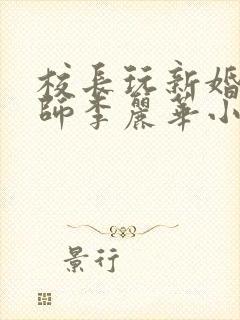 校長玩新婚
師李麗華小
景行